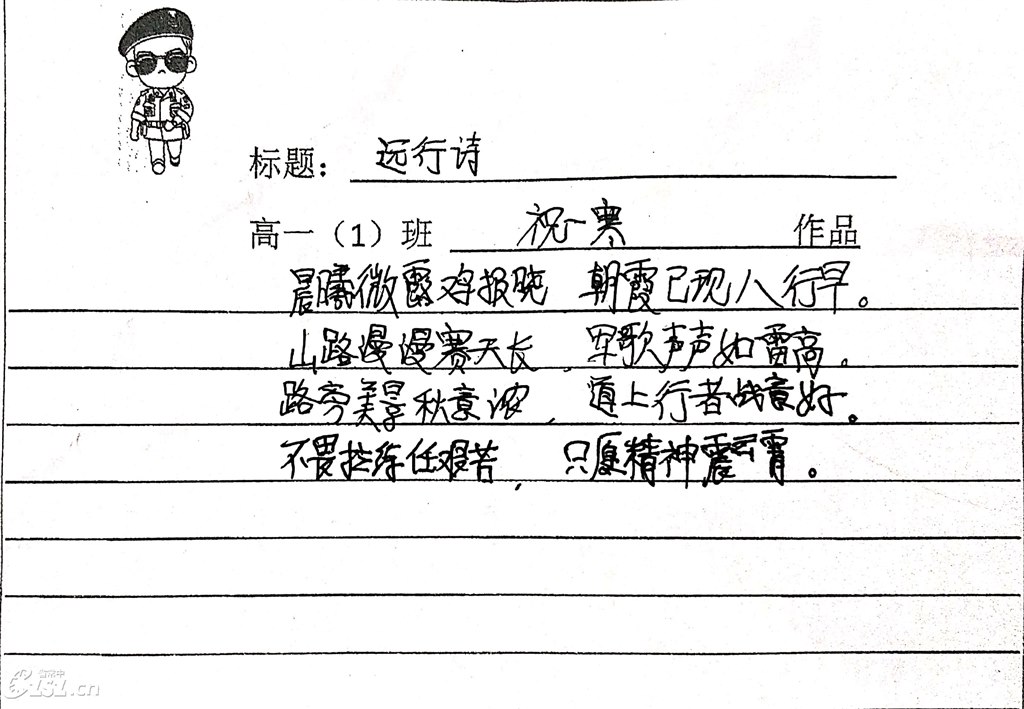 标题： 远行诗
高一（1）班 祝一寒 作品
晨曦微露鸡报晓 朝霞已现人行早。
山路漫漫赛天长，军歌声声如雷高。
路旁美景秋意浓，道上行者战意好。
不畏拉练任艰苦，只愿精神震云霄。
LSZ.cn